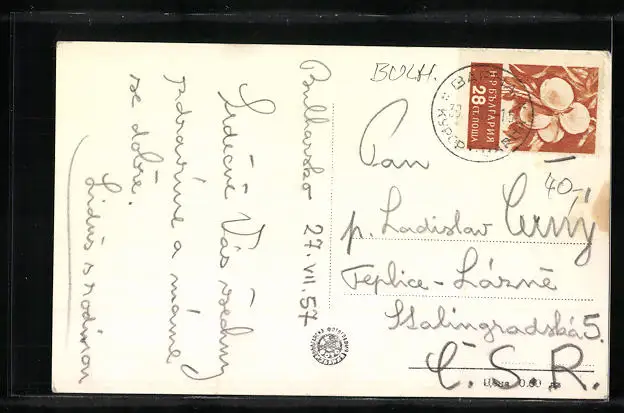 Bulharsko 27.VII.57
Srdečně Vás všechny
zdravíme a máme
se dobře.
Liduš s rodinou
BULH.
НР БЪЛГАРИЯ
28 СТ. ПОЩА
КУРОР
40,-
Pan
p. Ladislav Černý
Teplice - Lázně
Stalingradská 5.
Č.S.R.
Цена 0.60 лв